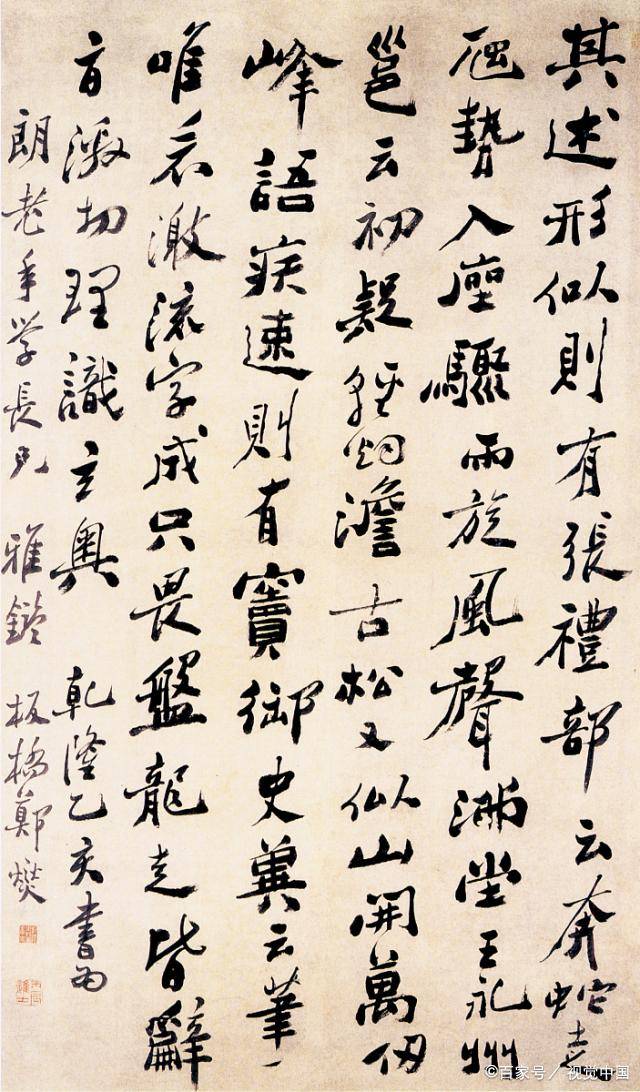 其述形似則有張禮部云奔蛇走
虺勢入座驟雨旋風聲滿堂王永州
邕云初疑輕烟澹古松又似山開萬仞
峰語疾速則有竇御史冀云筆
唯看激流字成只畏盤龍走皆辭
旨激切理識玄奧 乾隆乙亥書為
朗老年學長兄 雅鑒 板橋鄭燮
©百家号／视觉中国